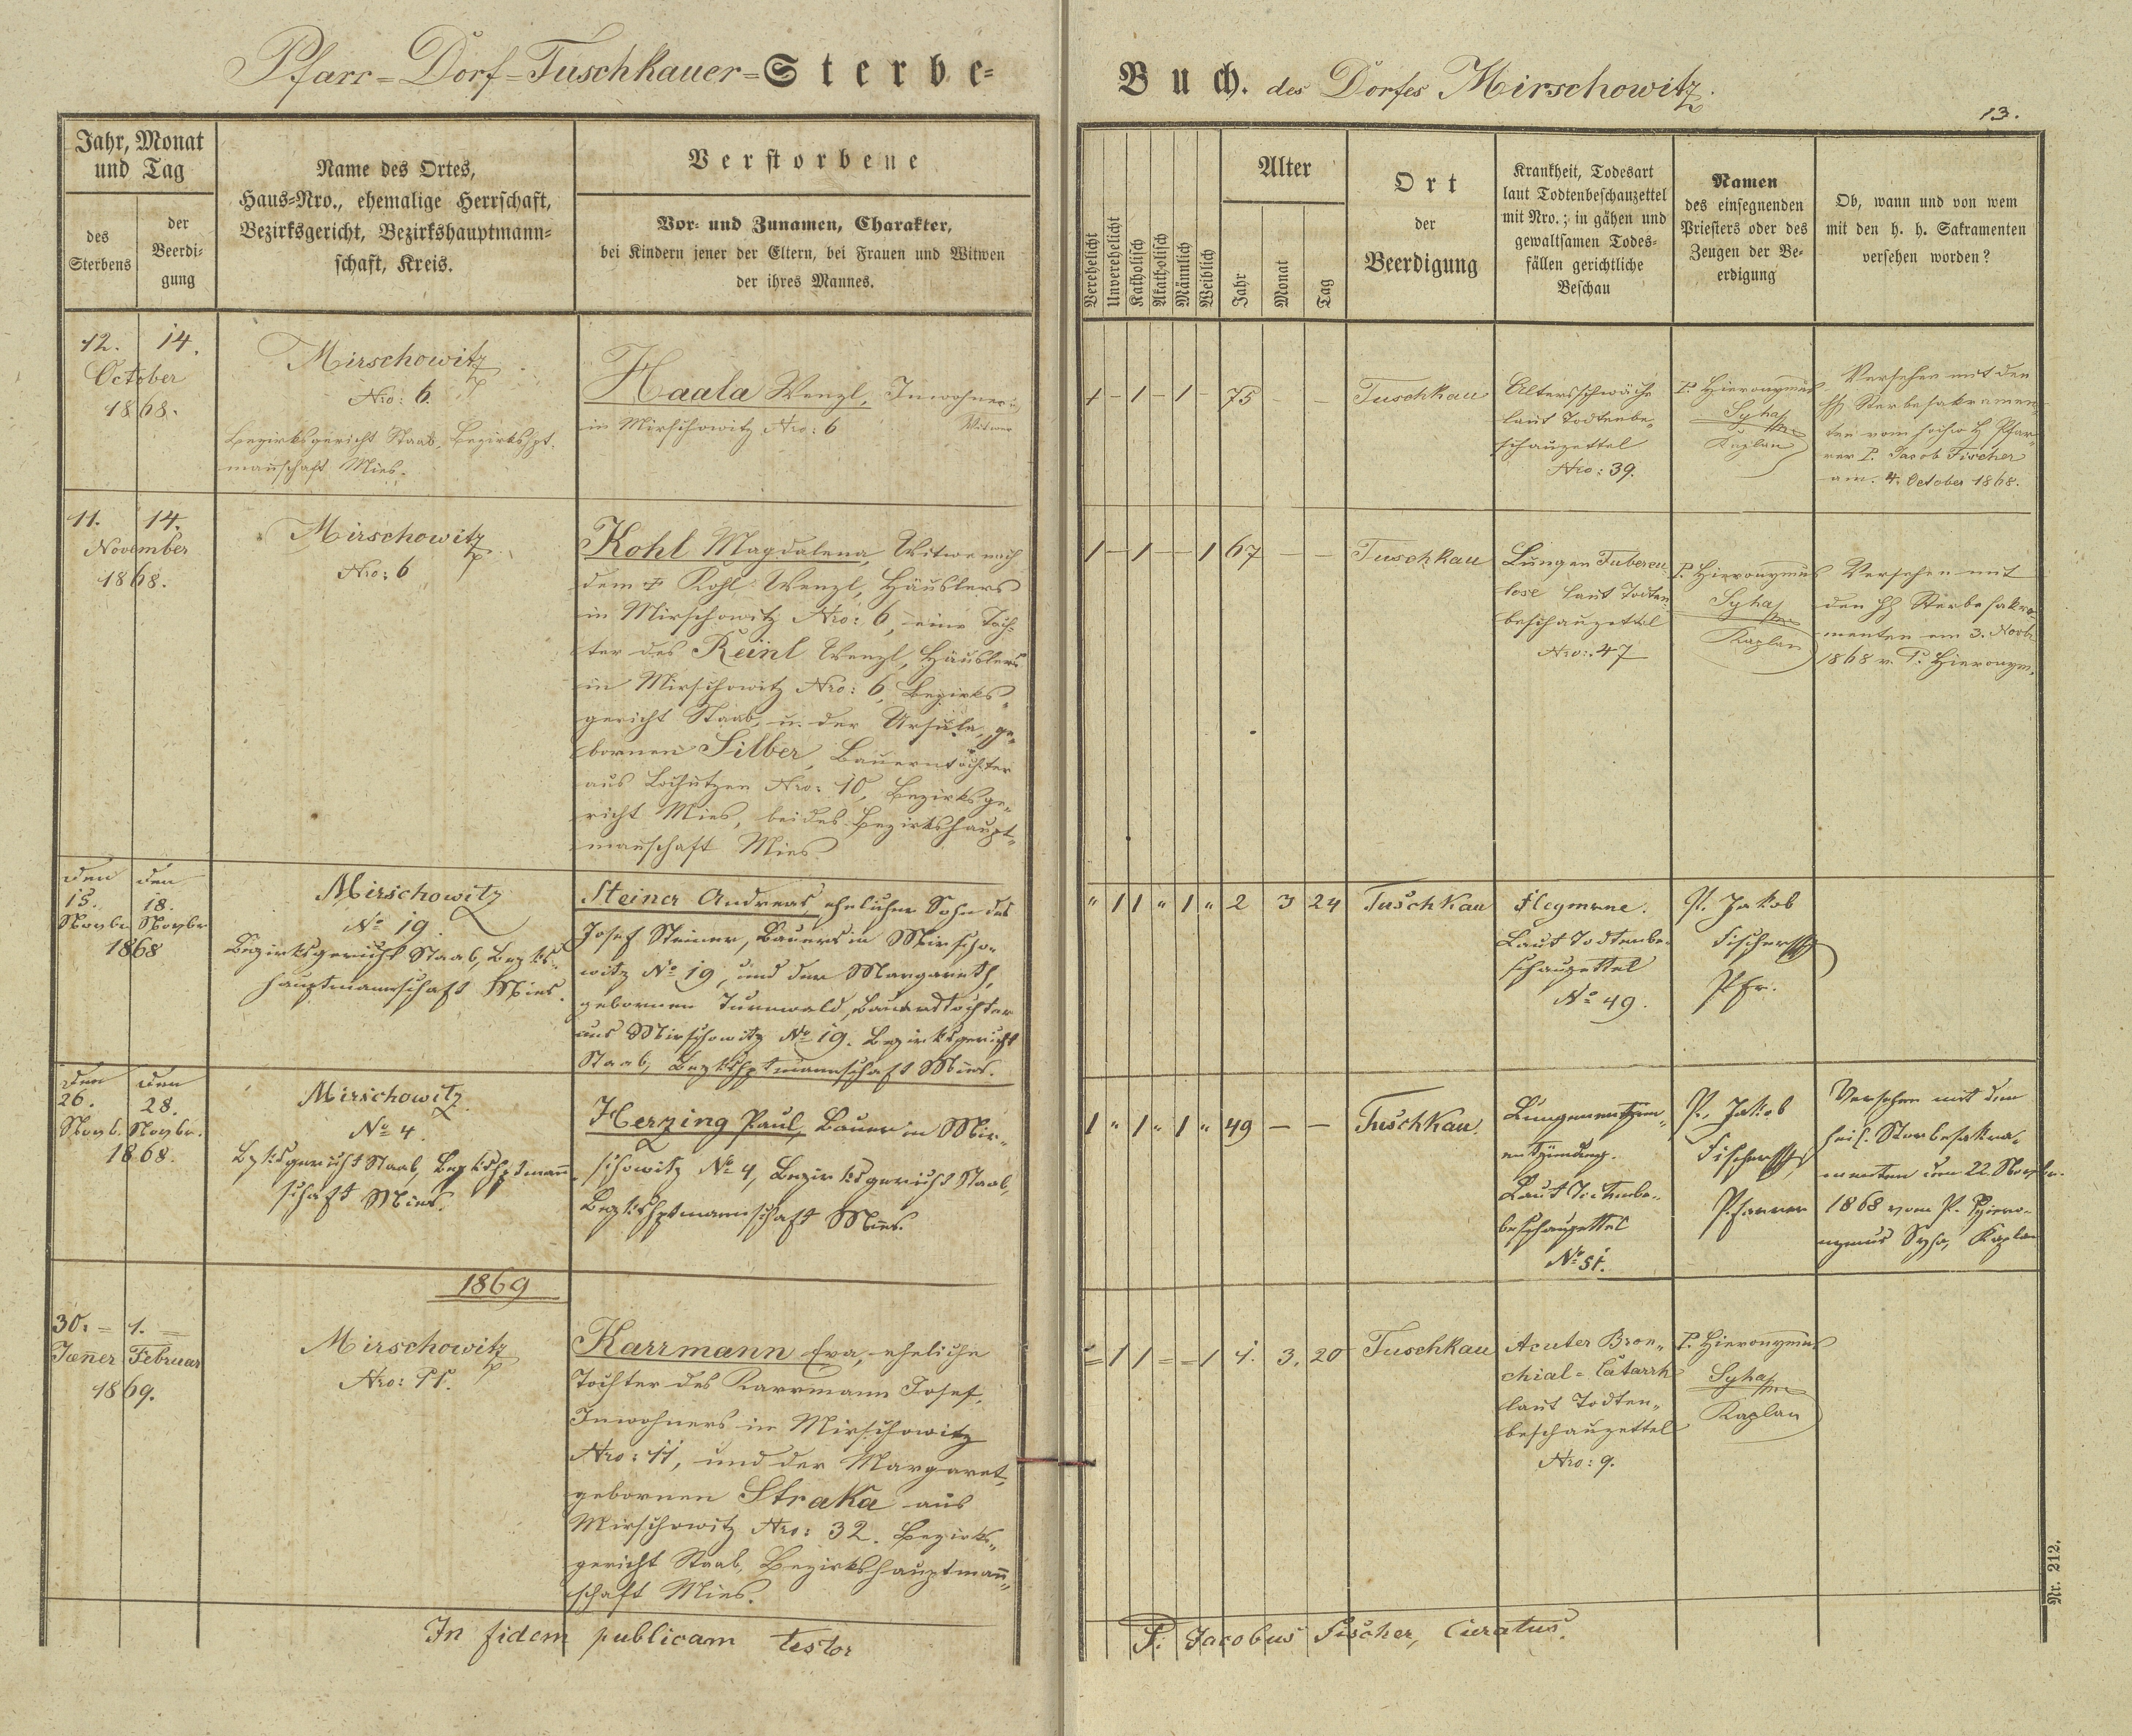 Pfarr-Dorf-Tuschkauer-Sterbe-
Buch. des Dorfes Mirschowitz.
13.
Jahr, Monat
und Tag
des
Sterbens
der
Beerdi-
gung
Name des Ortes,
Haus-Nro., ehemalige Herrschaft,
Bezirksgericht, Bezirkshauptmann-
schaft, Kreis.
Verstorbene
Vor- und Zunamen, Charakter,
bei Kindern jener der Eltern, bei Frauen und Witwen
der ihres Mannes.
Verehelicht
Unverehelicht
Katholisch
Akatholisch
Männlich
Weiblich
Alter
Jahr
Monat
Tag
Ort
der
Beerdigung
Krankheit, Todesart
laut Todtenbeschauzettel
mit Nro.; in gähen und
gewaltsamen Todes-
fällen gerichtliche
Beschau
Namen
des einsegnenden
Priesters oder des
Zeugen der Be-
erdigung
Ob, wann und von wem
mit den h. h. Sakramenten
versehen worden?
12. 14.
October
1868.
Mirschowitz
Nro: 6.
Bezirksgericht Staab, Bezirkshpt.
manschaft Mies.
Haala Wenzl, Inwohner
in Mirschowitz Nro: 6 Witwer
1 - 1 - 1 - 75 - -
Tuschkau
Altersschwäche
laut Todtenbe-
schauzettel
Nro: 39.
P. Hieronymus
Syha
Kaplan
Versehen mit den
hh Sterbesakramen-
ten vom hochw H Pfar-
rer P. Jacob Fischer
am. 4. October 1868.
11. 14.
November
1868.
Mirschowitz
Nro: 6
Kohl Magdalena, Witwe nach
dem † Kohl Wenzl, Häuslers
in Mirschowitz Nro: 6, eine Toch-
ter des Reinl Wenzl, Häuslers
in Mirschowitz Nro: 6, Bezirks-
gericht Staab, u. der Ursula, ge-
bornen Silber, Bauerntochter
aus Lochutzen Nro: 10, Bezirksge-
richt Mies, beides Bezirkshaupt-
manschaft Mies.
1 - 1 - - 1 67 - -
Tuschkau
Lungen Tubercu
lose laut Todten-
beschauzettel
Nro: 47
P. Hieronymus
Syha
Kaplan
Versehen mit
den hh Sterbesakra-
menten am 3. Novb.
1868 v. P. Hieronym.
den den
15. 18.
Novbr Novbr
1868
Mirschowitz
No 19.
Bezirksgericht Staab, Bezks-
hauptmannschaft Mies.
Steiner Andreas, ehelicher Sohn des
Josef Steiner, Bauers in Mirscho-
witz No 19, und der Margareth,
gebornen Turnwald, Bauerstochter
aus Mirschowitz No 19. Bezirksgericht
Staab, Bezkshptmannschaft Mies.
" 1 1 " 1 " 2 3 24
Tuschkau
Flegmone.
Laut Todtenbe-
schauzettel
No 49.
P. Jakob
Fischer
Pfr.
den den
26. 28.
Novb. Novbr.
1868.
Mirschowitz
No 4.
Bzksgericht Staab, Bezkshptmann
schaft Mies.
Herzing Paul, Bauer in Mir-
schowitz No 4, Bezirksgericht Staab,
Bezkshptmannschaft Mies.
1 " 1 " 1 " 49 - -
Tuschkau.
entzündung.
Laut Todtenbe-
beschauzettel
No 51.
P. Jakob
Fischer
Pfarrer
Versehen mit den
heil. Sterbesakra-
menten den 22 Novbr.
1868 vom P. Hiero-
nymus Syha, Kaplan
1869
30. 1.
Jäner Februar
1869.
Mirschowitz
Nro: 11.
Karrmann Eva, eheliche
Tochter des Karrmann Josef,
Inwohners in Mirschowitz
Nro: 11, und der Margaret,
gebornen Straka aus
Mirschowitz Nro: 32. Bezirks-
gericht Staab, Bezirkshauptman-
schaft Mies.
= 1 1 = = 1 1. 3. 20
Tuschkau
Acuter Bron-
chial-Catarrh
laut Todten-
beschauzettel
Nro: 9.
P. Hieronymus
Syha
Kaplan
In fidem publicam testor
P. Jacobus Fischer, Curatus.
Nr. 212.